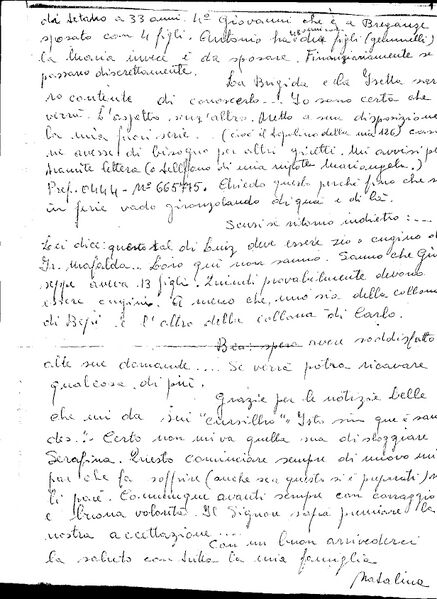 di Setadro a 33 anni. 4° Giovanni che è a Breganze
sposato con 4 figli. Antonio ha 48 anni con due figli (gemelli)
la Maria invece è da sposare. Finanziariamente se
passano discretamente.
La Brigida e la Isetta sar
ro contente di conoscerlo... Io sono certa che
verrà. L'aspetto senz'altro. Metto a sua disposizione
la mia fuori serie. (cioè il topolino della mia 126) casa
ne avesse di bisogno per altri giretti. Mi avvisi pe
tramite lettera (o telefono di una nipote Mariangela.)
Pref. 0444 - N° 665775. Chiedo questo perchè fino che s
in ferie vado gironzolando di qua e di là.
Scusi se ritorno indietro:...
Lei dice: questo tal di Luiz deve essere zio o cugino di
Gr. Mafalda... Loro qui non sanno. Sanno che Giu
seppe aveva 13 figli. Quindi probabilmente devono
essere cugini. A meno che, uno sia della collana
di Bepi e l'altro della collana di Carlo.
Ben spero avere soddisfatto
alle sue domande.... Se verrà potrà ricavare
qualcosa di più.
Grazie per le notizie belle
che mi da sui "Cursilho".
Certo non mi va quella sua di sloggiare
Serafina. Questo cominciare sempre di nuovo mi
par che fa soffrire (anche se a questo si è preparati)
li pare. Comunque avanti sempre con coraggio
e buona volontà. Il Signore saprà premiare la
nostra accettazione....
Con un buon arrivederci
la saluto con tutta la mia famiglia
Natalina